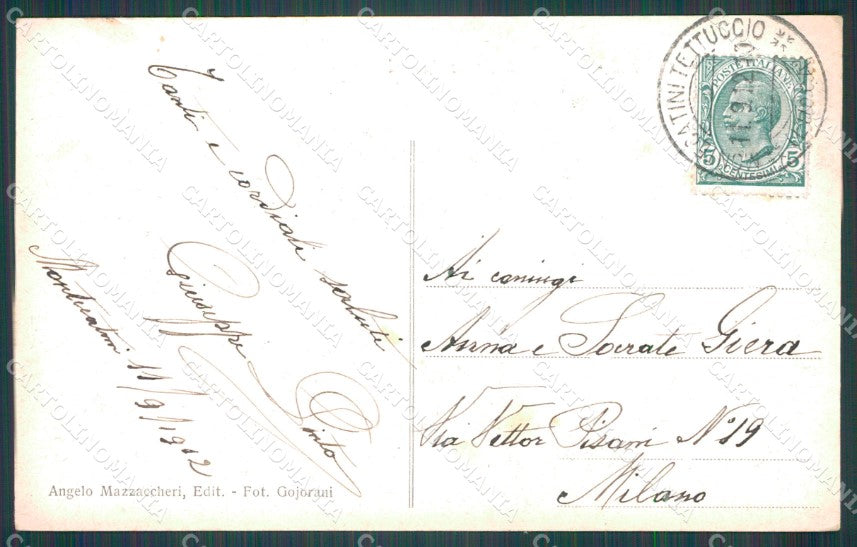 Tanti e cordiali saluti
Giuseppe Pinto
Montecatini 11/9/1912
Angelo Mazzaccheri, Edit. - Fot. Gojorani
CATINI TETTUCCIO
11.9.12
POSTE ITALIANE
5 CENTESIMI 5
Ai coniugi
Anna e Socrate Giera
Via Vettor Pisani N° 19
Milano
CARTOLINOMANIA